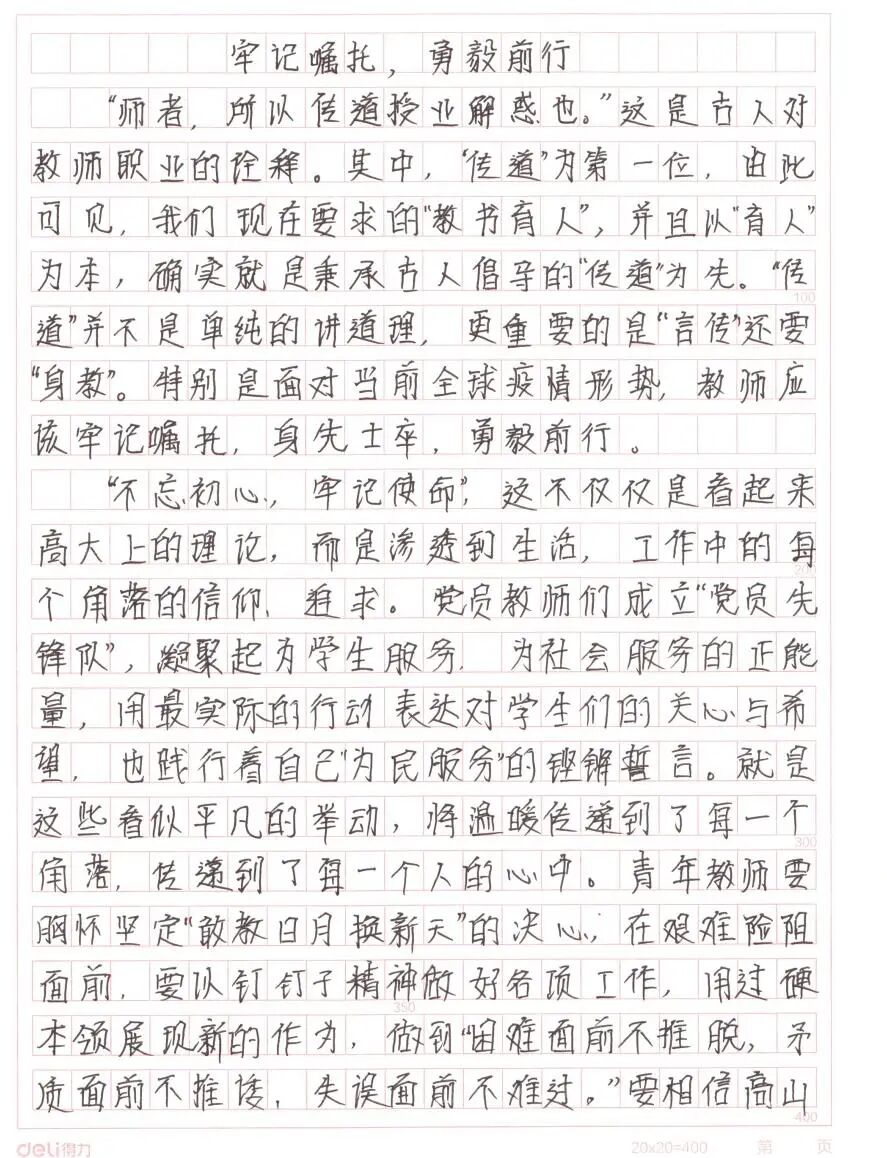 牢记嘱托，勇毅前行
“师者，所以传道授业解惑也。”这是古人对
教师职业的诠释。其中，“传道”为第一位，由此
可见，我们现在要求的“教书育人”，并且以“育人”
为本，确实就是秉承古人倡导的“传道”为先。“传
100
道”并不是单纯的讲道理，更重要的是“言传”还要
“身教”。特别是面对当前全球疫情形势，教师应
该牢记嘱托，身先士卒，勇毅前行。
“不忘初心，牢记使命”，这不仅仅是看起来
高大上的理论，而是渗透到生活，工作中的每
200
个角落的信仰、追求。党员教师们成立“党员先
锋队”，凝聚起为学生服务、为社会服务的正能
量，用最实际的行动表达对学生们的关心与希
望，也践行着自己“为民服务”的铿锵誓言。就是
这些看似平凡的举动，将温暖传递到了每一个
300
角落，传递到了每一个人的心中。青年教师要
胸怀坚定“敢教日月换新天”的决心，在艰难险阻
面前，要以钉钉子精神做好各项工作，用过硬
350
本领展现新的作为，做到“困难面前不推脱，矛
质面前不推诿，失误面前不难过。”要相信高山
400
deli得力 20x20=400 第 页